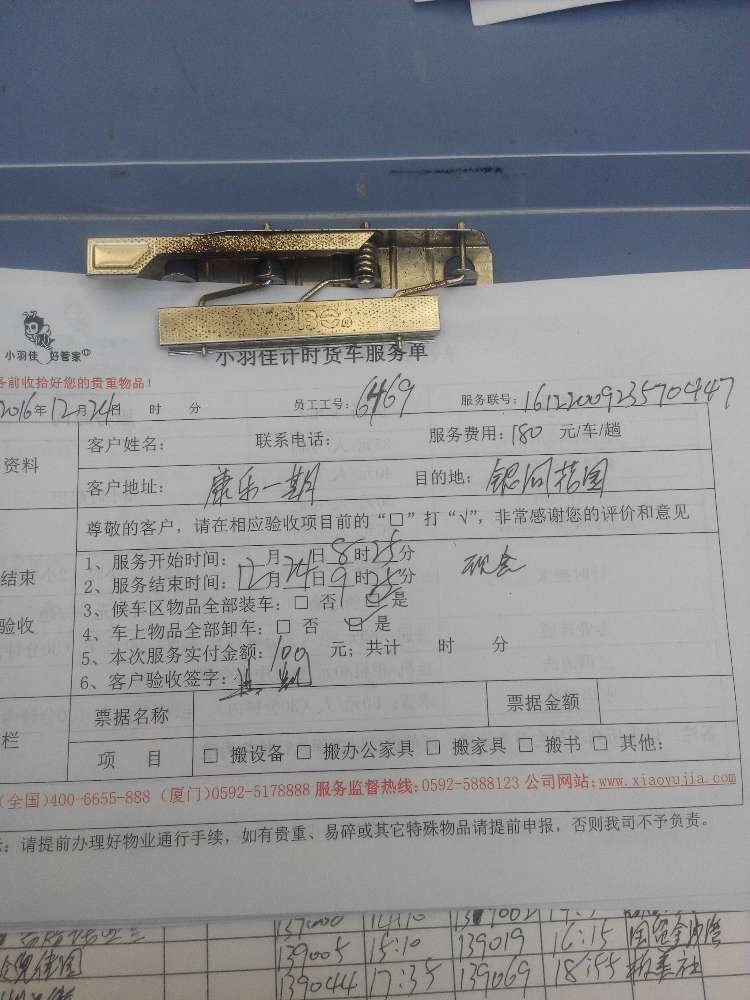 小羽佳 好管家
小羽佳计时货车服务单
前收拾好您的贵重物品！
2016年12月24日 时 分 员工工号：6469 服务联号：16122009235704447
资料
客户姓名： 联系电话： 服务费用：180 元/车/趟
客户地址：康乐一期 目的地：银河花园
尊敬的客户，请在相应验收项目前的“□”打“√”，非常感谢您的评价和意见
结束
验收
1、服务开始时间：12月24日8时25分 现金
2、服务结束时间：12月24日9时25分
3、候车区物品全部装车：□ 否 □ 是
4、车上物品全部卸车：□ 否 □ 是
5、本次服务实付金额：100 元；共计 时 分
6、客户验收签字：
栏
票据名称 票据金额
项 目 □ 搬设备 □ 搬办公家具 □ 搬家具 □ 搬书 □ 其他：
(全国)400-6655-888 (厦门)0592-5178888 服务监督热线:0592-5888123 公司网站:www.xiaoyujia.com
：请提前办理好物业通行手续，如有贵重、易碎或其它特殊物品请提前申报，否则我司不予负责。
139005 15:10 139019 16:15
139044 17:35 139069 18:55